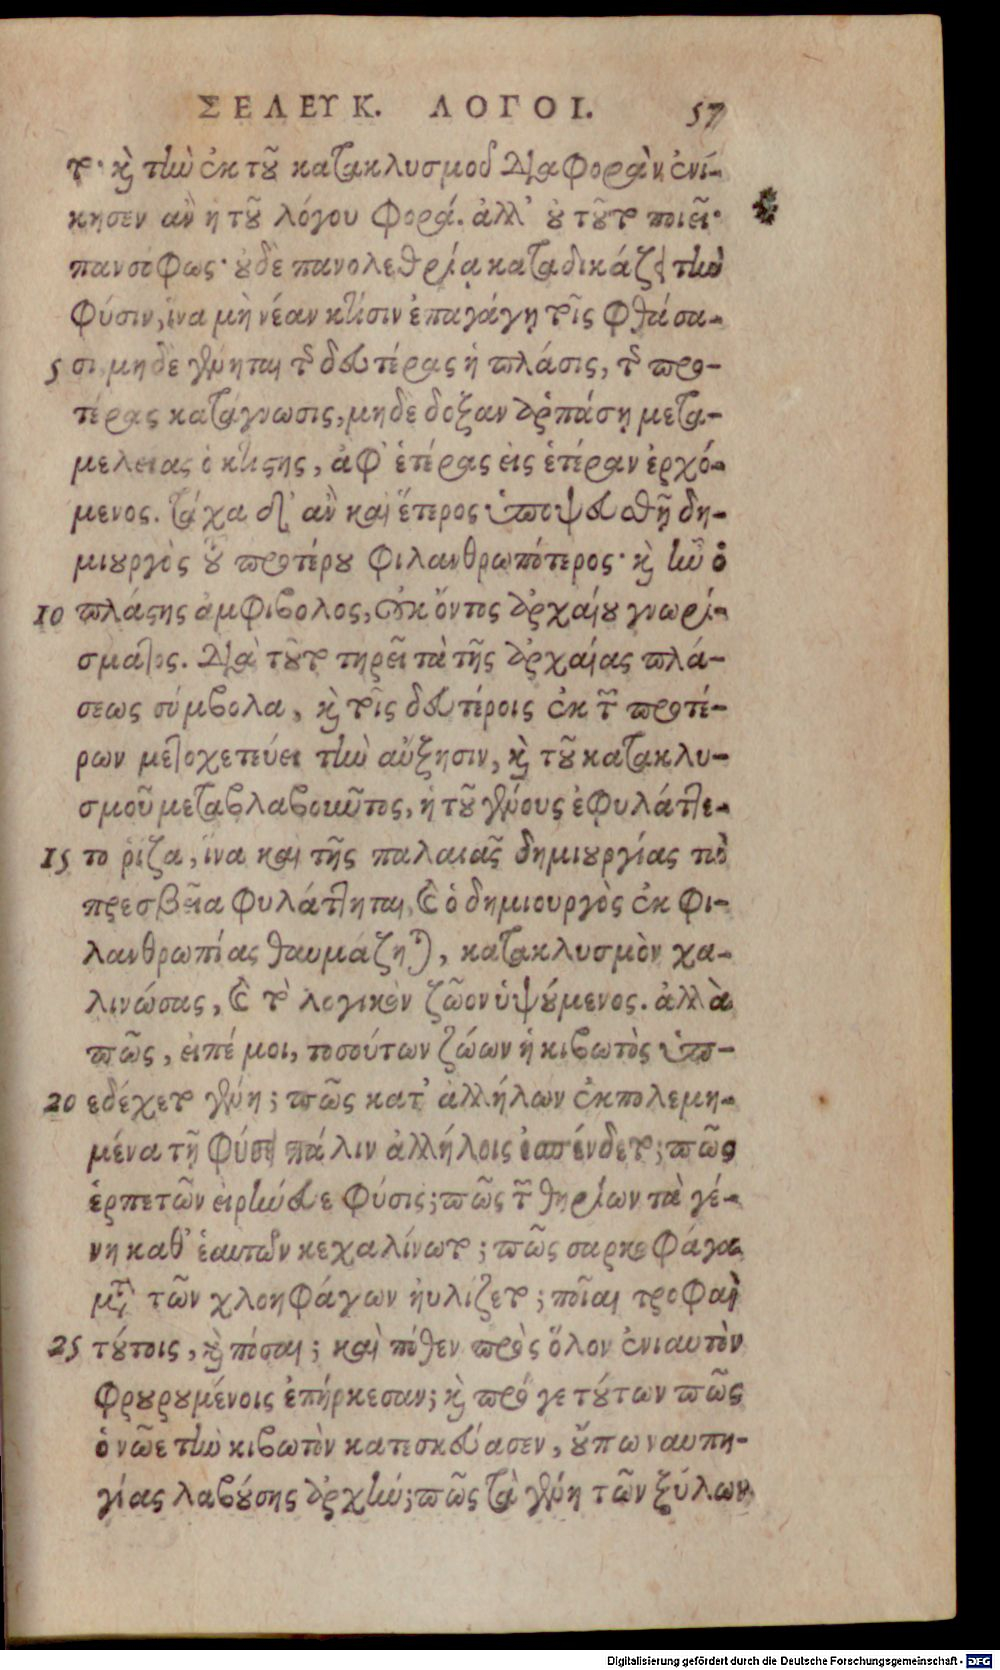 ΣΕΛΕΥΚ. ΛΟΓΟΙ. 57
το· καὶ τὴν ἐκ τοῦ κατακλυσμοῦ διαφορὰν ἐνί-
κησεν ἂν ἡ τοῦ λόγου φορά. ἀλλ' οὐ τοῦτο ποιεῖ·
πανσόφως· οὐδὲ πανολεθρίᾳ καταδικάζει τὴν
φύσιν, ἵνα μὴ νέαν κτίσιν ἐπαγάγῃ τοῖς φθάσα-
5 σι, μηδὲ γένηται τῆς δευτέρας ἡ πλάσις, τῆς προ-
τέρας κατάγνωσις, μηδὲ δόξαν ἁρπάσῃ μετα-
μελείας ὁ κτίστης, ἀφ' ἑτέρας εἰς ἑτέραν ἐρχό-
μενος. τάχα δ' ἂν καὶ ἕτερος ὑποψευθῇ δη-
μιουργὸς τοῦ προτέρου φιλανθρωπότερος· καὶ ἦν ὁ
10 πλάστης ἀμφίβολος, οὐκ ὄντος ἀρχαίου γνωρί-
σματος. διὰ τοῦτο τηρεῖ τὰ τῆς ἀρχαίας πλά-
σεως σύμβολα, καὶ τοῖς δευτέροις ἐκ τῶν προτέ-
ρων μετοχετεύει τὴν αὔξησιν, καὶ τοῦ κατακλυ-
σμοῦ μεταβλαβοῦντος, ἡ τοῦ γένους ἐφυλάττε-
15 το ῥίζα, ἵνα καὶ τῆς παλαιᾶς δημιουργίας τὰ
πρεσβεῖα φυλάττηται, καὶ ὁ δημιουργὸς ἐκ φι-
λανθρωπίας θαυμάζηται, κατακλυσμὸν χα-
λινώσας, καὶ τὸ λογικὸν ζῶον ὑψούμενος. ἀλλὰ
πῶς, εἰπέ μοι, τοσούτων ζώων ἡ κιβωτὸς ὑπ-
20 εδέχετο γένη; πῶς κατ' ἀλλήλων ἐκπολεμη-
μένα τῇ φύσει πάλιν ἀλλήλοις ἐσπένδετο; πῶς
ἑρπετῶν εἰρήνευε φύσις; πῶς τῶν θηρίων τὰ γέ-
νη καθ' ἑαυτῶν κεχαλίνωτο; πῶς σαρκοφάγα
μετὰ τῶν χλοηφάγων ηὐλίζετο; ποῖαι τροφαὶ
25 τούτοις, καὶ πόσαι; καὶ πόθεν πρὸς ὅλον ἐνιαυτὸν
φρουρουμένοις ἐπήρκεσαν; καὶ πρό γε τούτων πῶς
ὁ νῶε τὴν κιβωτὸν κατεσκεύασεν, οὔπω ναυπη-
γίας λαβούσης ἀρχήν; πῶς τὰ γένη τῶν ξύλων
Digitalisierung gefördert durch die Deutsche Forschungsgemeinschaft - DFG